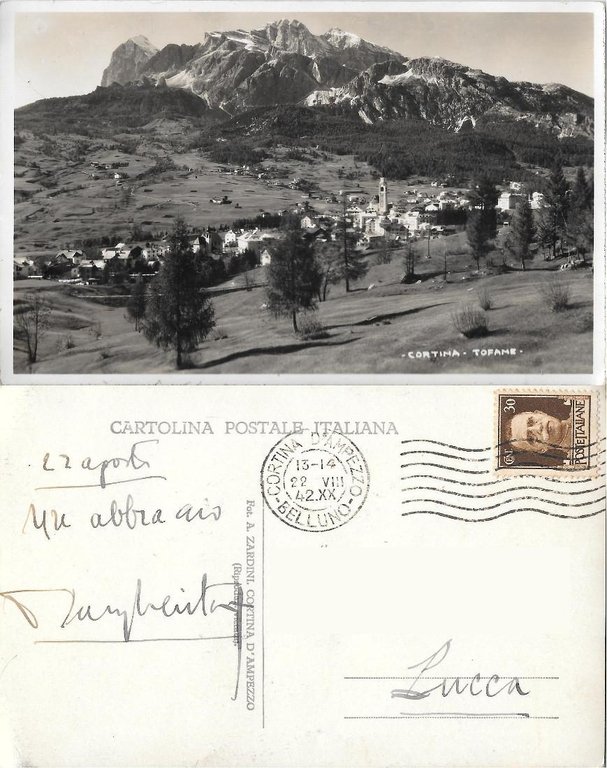 · CORTINA · TOFANE ·
CARTOLINA POSTALE ITALIANA
CORTINA D'AMPEZZO
13-14
22 VIII
42.XX
BELLUNO
30
CENT.
POSTE ITALIANE
22 agosto
Un abbraccio
Margherita
Fot. A. ZARDINI. CORTINA D'AMPEZZO
Lucca